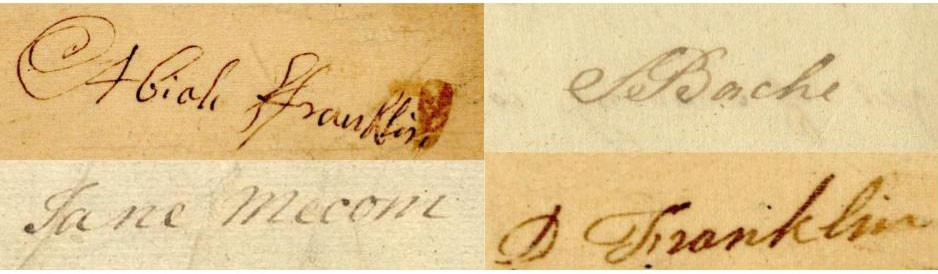 Abiah Franklin
S Bache
Jane Mecom
D Franklin